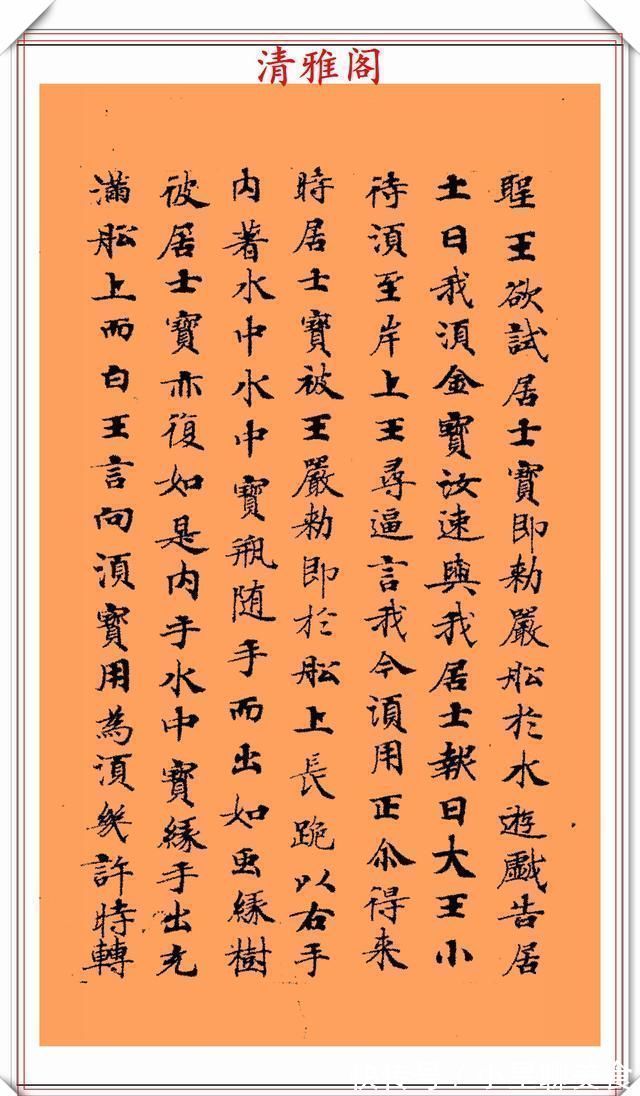 清雅阁
聖王欲試居士寶即勅嚴舩於水遊戲告居
士曰我湏金寶汝速與我居士報曰大王小
待湏至岸上王尋逼言我今湏用正尒得来
時居士寶被王嚴勅即於舩上長跪以右手
内著水中水中寶瓶随手而出如虫緣樹
彼居士寶亦復如是内手水中寶緣手出充
滿舩上而白王言向湏寶用為湏幾許時轉